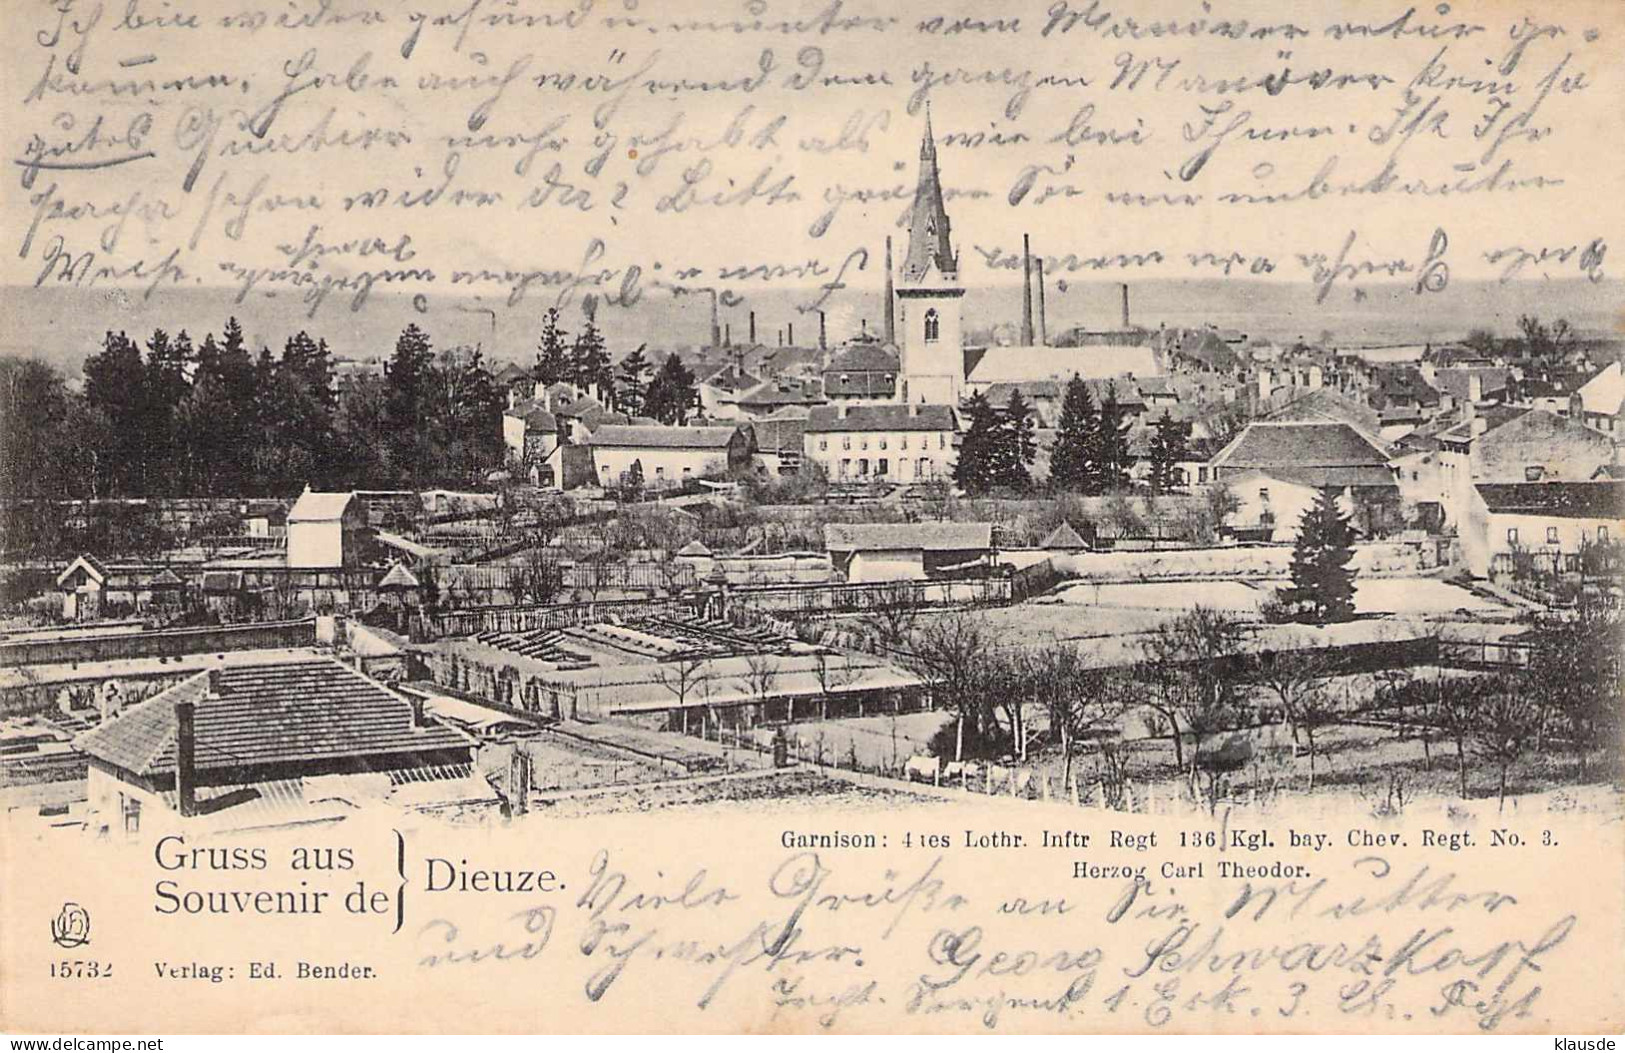 Ich bin wider gesund u. munter vom Manöver retur ge-
kommen. Habe auch während dem ganzen Manöver kein so
gutes Quatier mehr gehabt als wie bei Ihnen. Ist Ihr
schon wider da? Bitte grüßen Sie mir unbekanter
Weise.
Garnison: 4tes Lothr. Inftr Regt 136, Kgl. bay. Chev. Regt. No. 3.
Herzog Carl Theodor.
Gruss aus
Souvenir de
Dieuze.
Viele Grüße an Sie Mutter
und Schwester. Georg Schwarzkopf
Sergent. 1. Esk. 3. Ch. Rgt.
15732 Verlag: Ed. Bender.
klausde